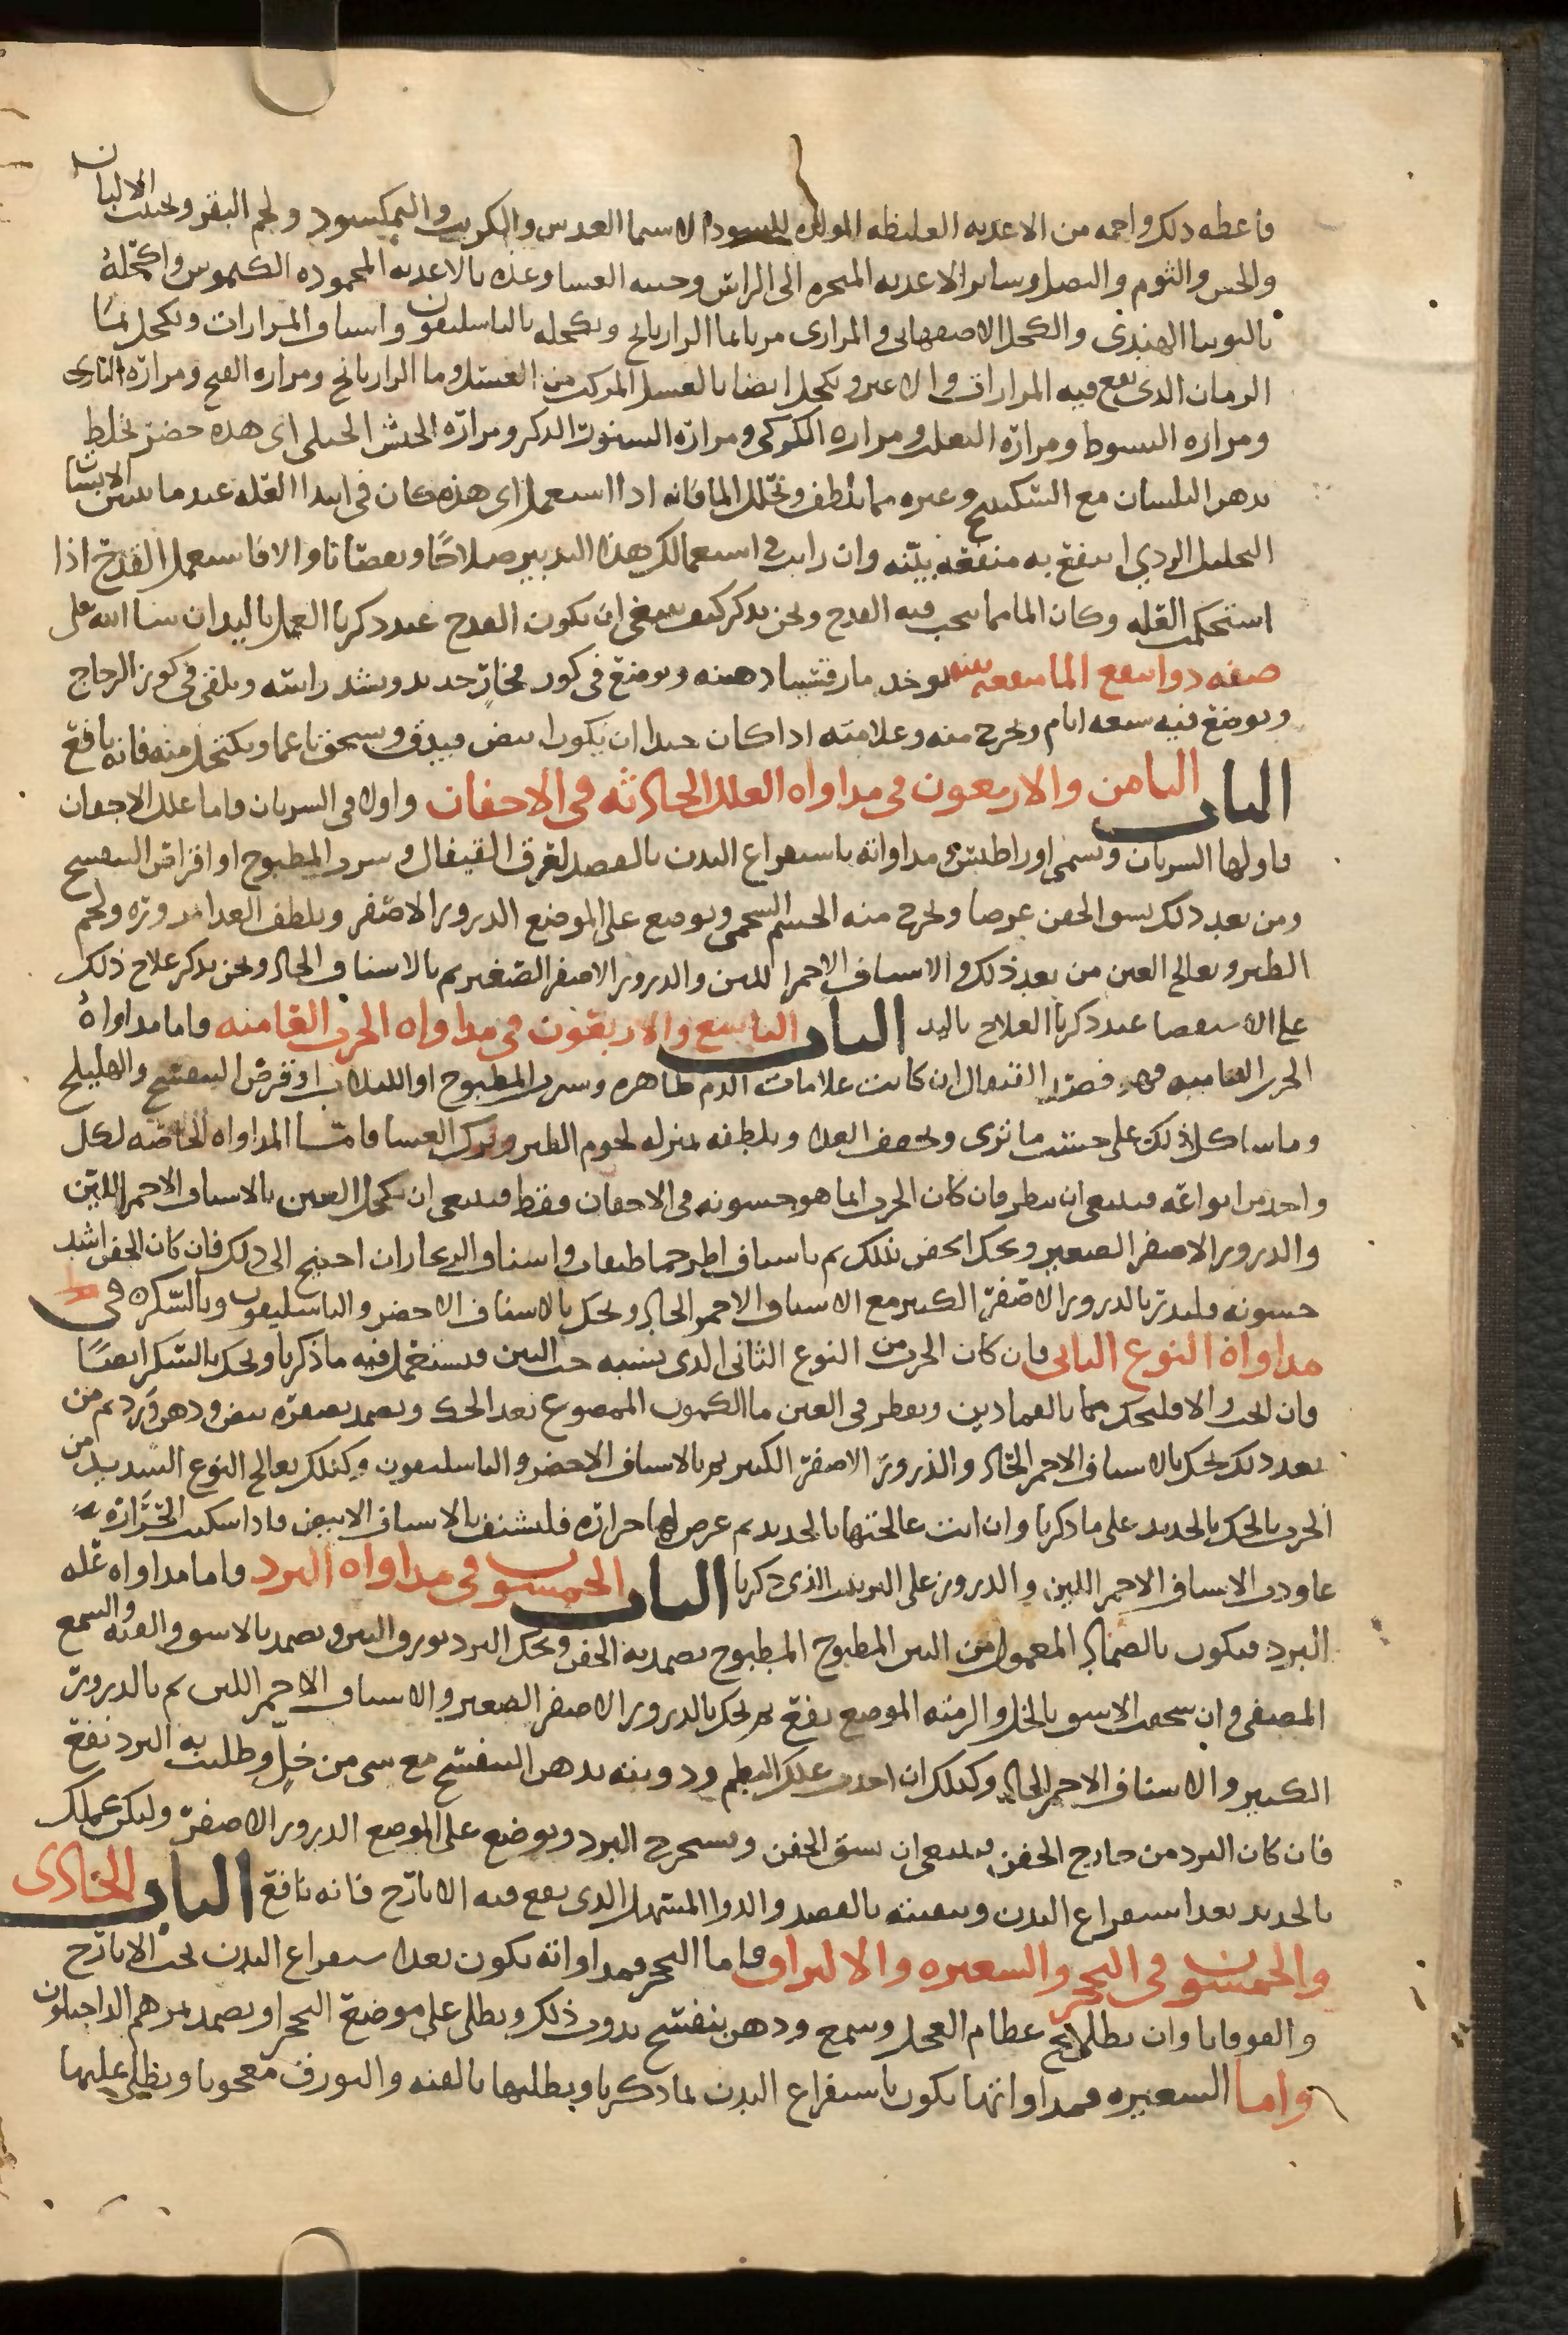 فاعطه ذلك واحمه من الاغذيه الغليظه المولده للسودا لاسيما العدس والكرنب والنمكسود ولحم البقر الالبان
والجبن والثوم والبصل وساير الاغذيه المبخره الى الراس وجنبه العشا وغذه بالاغذيه المحموده الكيموس واكحله
بالتوتيا الهندى والكحل الاصفهانى والمرارى مربا بما الرازيانج وتكحله بالباسليقون واشياف المرارات وتكحل بما
الرمان الذى يقع فيه المرارات والاغبر وتكحل ايضا بالعسل المركب من العسل وما الرازيانج ومراره القبج ومراره البازى
ومراره الشبوط ومراره الثعلب ومراره الكركى ومراره السنور الذكر ومراره الجبلى اى هذه حضر تخلط
بدهن البلسان مع السكبينج وغيره مما يلطف ويحلل الما فانه اذا استعمل اى هذه كان فى ابتدا العله عند ما
التخيل الردي انتفع به منفعه بينه وان رايت فى استعمالك هذا التدبير صلاحا ونقصانا والا فاستعمل القدح اذا
استحكمت العله وكان الما مما يجب فيه القدح ونحن نذكر كيف ينبغى ان يكون القدح عند ذكرنا العمل باليد ان شا الله تعلى
صفه دوا ينفع الما منفعه بينه يوخذ مارقشيشا ذهبيه ويوضع فى كوز فخار جديد ويشد راسه ويلقى فى كوز الزجاج
ويوضع فيه سبعه ايام ويخرج منه وعلامته اذا كان جيدا ان يكون ابيض فيدق ويسحق ناعما ويكتحل منه فانه نافع
الباب الثامن والاربعون فى مداواه العلل الحادثه فى الاجفان واولا فى السرنان واما علل الاجفان
فاولها السرنان ويسمى مداواته باستفراغ البدن بالفصد لعرق القيفال وشرب المطبوخ او اقراص البنفسج
ومن بعد ذلك يشق الجفن عرضا ويخرج منه الجسم الشحمى ويوضع على الموضع الدرور الاصفر ويلطف الغذا مزوره ولحم
الطير ويعالج العين من بعد ذلك والاشياف الاحمر اللين والدرور الاصفر الصغير ثم بالاشياف الحاد ونحن نذكر علاج ذلك
على الاستقصا عند ذكرنا العلاج باليد الباب التاسع والاربعون فى مداواه الجرب العاميه واما مداواه
الجرب العاميه فهو فصد القيفال ان كانت علامات الدم ظاهره وشرب المطبوخ او او قرص البنفسج والهليلج
وما شاكل ذلك على حسب ما ترى وتخفف الغذا وتلطفه بمنزله لحوم الطير وترك العشا فاما المداواه الخاصه لكل
واحد من انواعه فينبغى ان ينظر فان كان الجرب انما هو خشونه فى الاجفان فقط فينبغى ان تكحل العين بالاشياف الاحمر اللين
والدرور الاصفر الصغير ويحك الجفن بذلك ثم باشياف اطرخماطيقان واشياف الزنجار ان احتيج الى ذلك فان كان الجفن اشد
خشونه فليدر بالدرور الاصفر الكبير مع الاشياف الاحمر الحاد ويحك بالاشياف الاخضر والباسليقون وبالسكر فى
مداواة النوع الثانى فان كان الجرب من النوع الثانى الذى يشبه حب التين فيستعمل فيه ما ذكرنا ويحك بالسكر ايضا
فان انجب والا فليحك بالقمادين ويقطر فى العين ما الكمون الممضوغ بعد الحك ويضمد بصفره بيض ودهن ورد ثم من
بعد ذلك يحك بالاشياف الاحمر الحاد والذرور الاصفر الكبير ثم بالاشياف الاخضر والباسليقون وكذلك يعالج النوع الشديد من
الجرب بالحك بالحديد على ما ذكرنا وان انت عالجتها بالحديد ثم عرض لها حراره فليشيف بالاشياف الابيض فاذا سكنت الحراره
عاودت الاشياف الاحمر اللين والدرور على الترتيب الذى ذكرنا الباب الخمسون فى مداواه البرد واما مداواه عله
البرد فيكون بالضماد المعمول من التين المطبوخ المطبوخ يضمد به الجفن ويحك البرد بورق التين ويضمد بالاسو والقنه والشمع
المصفى وان سحقت الاسو بالخل والزمته الموضع نفع ثم يحك بالدرور الاصفر الصغير والاشياف الاحمر اللين ثم بالدرور
الكبير والاشياف الاحمر الحاد وكذلك ان اخذت علك البطم ودوبته بدهن البنفسج مع شى من خل وطليت به البرد نفع
فان كان البرد من خارج الجفن فينبغى ان يشق الجفن ويستخرج البرد ويوضع على الموضع الدرور الاصفر وليكن عملك
بالحديد بعد استفراغ البدن وتنقيته بالفصد والدوا المسهل الذى يقع فيه الايارج فانه نافع الباب الحادى
والخمسون فى التحجر والشعيره والالتزاق فاما التحجر فمداواته يكون بعد استفراغ البدن بحب الايارج
والقوقايا وان يطلا بمخ عظام العجل وشمع ودهن بنفسج يدوب ذلك ويطلى على موضع التحجر او يضمد بمرهم الداخيلون
واما الشعيره فمداواتها يكون باستفراغ البدن بما ذكرنا ويطليها بالقنه والبورق معجونا ويطلى عليها